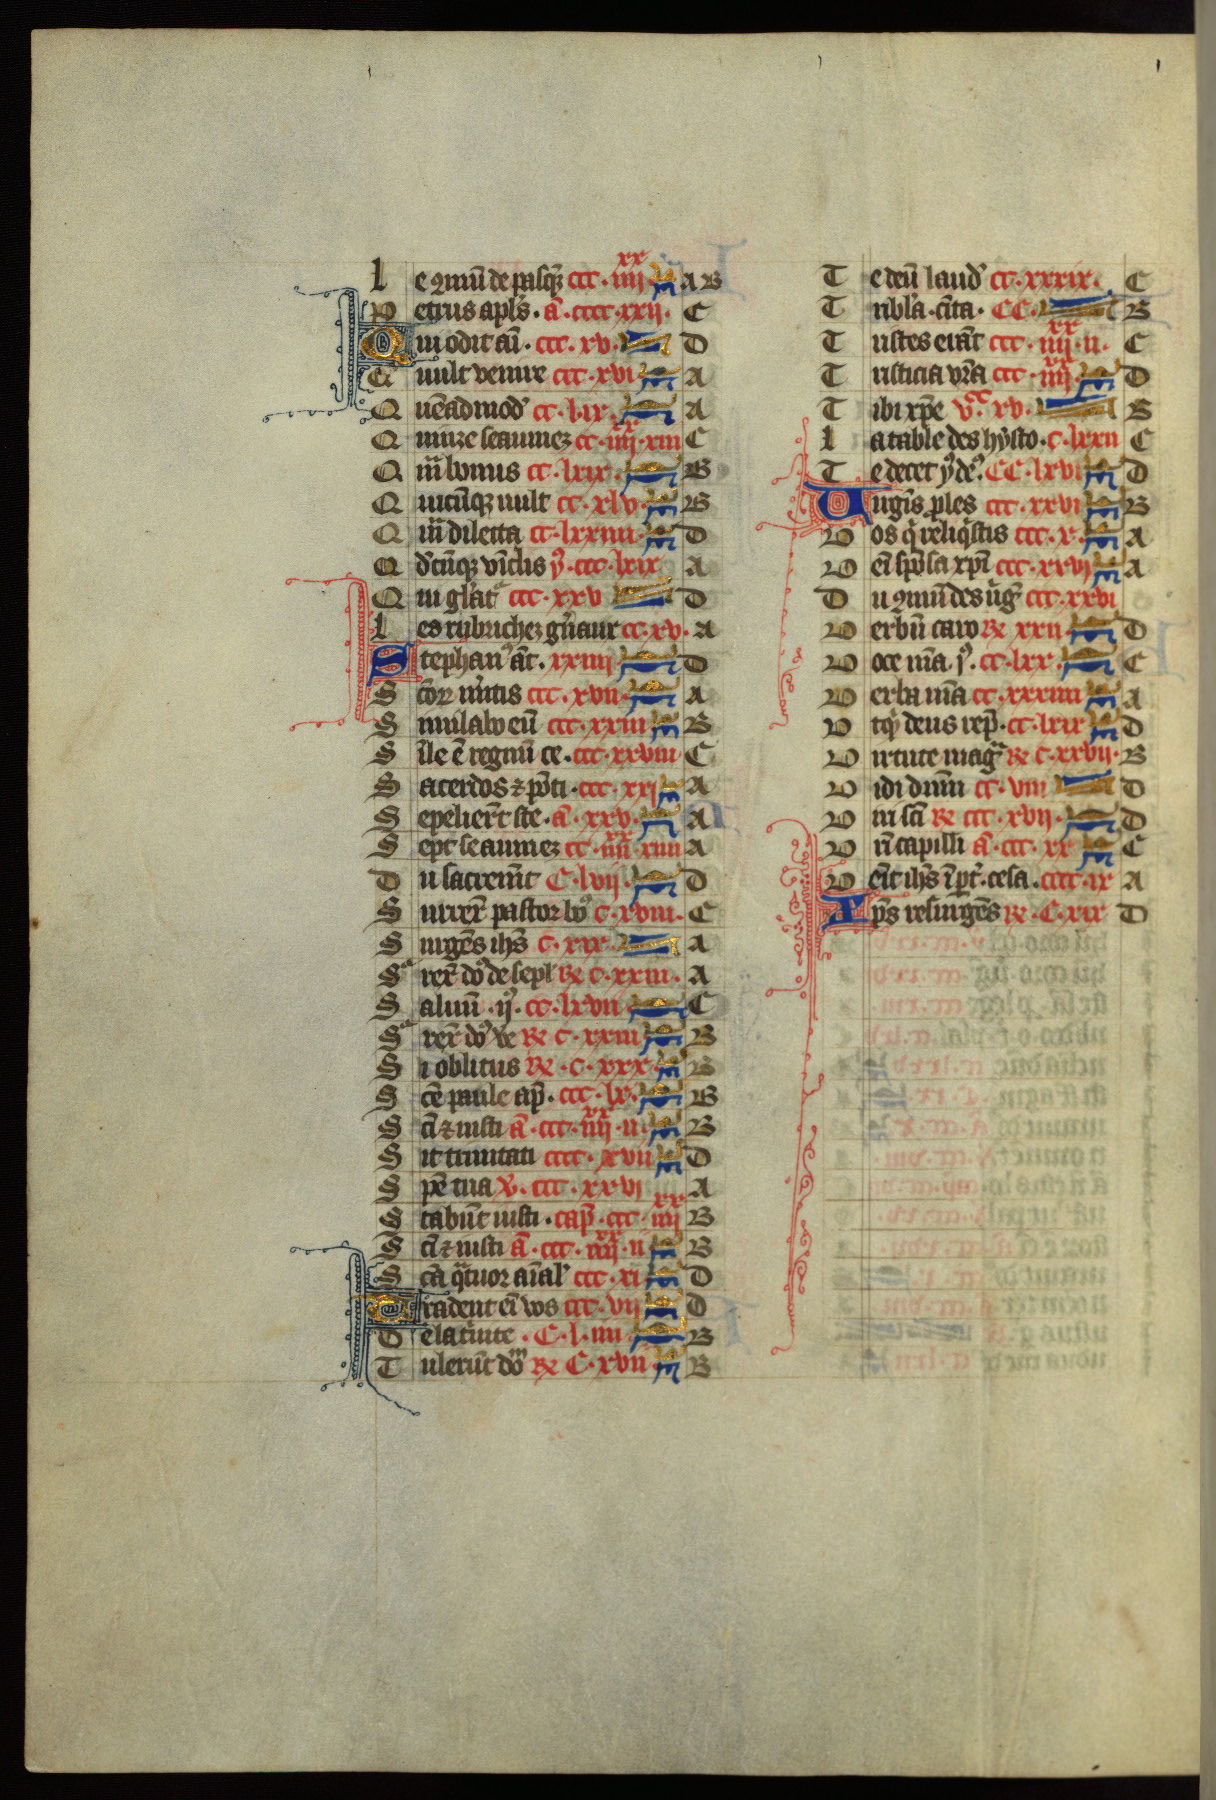 Le 9mũ de pasq̃ ccc · iiij xx A B
Petrus apl's · a᷃ · cccc · xxij · C
Qui odit aĩ · ccc · xv · D
Q uult venire ccc · xvi A
Q uẽadmod' cc · l · ix · A
Q uinze seaumez cc · iiij xx · xiii C
Q m̃ bonus cc · lxix · B
Q uicũq; uult cc · xlv · B
Q m̃ dilecta cc · lxxiiii · D
Q d'cũq; vĩclis ccc · lxix A
Q ui gl'at' ccc · xxv D
Les rubriches cc · xv · A
Stephan' at̃ · xxiiii D
S c̃or m'itis ccc · xvii · A
S imilabo eũ ccc · xxiii B
S ile ẽ regnũ ce · ccc · xxviii C
S acerdos ⁊ põti · ccc · xxi A
S epelier't ste · a᷃ · xxv · A
S ept seaumez cc · iiij xx xiiii A
D u sacrem̃t C · lvii · D
S urrex̃ pastor bõ c · xviii · C
S urgẽs ihs̃ c · xix · A
S rex̃ dõ de sepl' Rx c · xxiii · A
S aluũ · ij' · cc · lxvii C
S rex̃ dõ ve Rx c · xxiii B
S i oblitus Rx · c · xxx · B
S c̃e paule ap̃ · ccc · lx · B
S c̃i ⁊ iusti a᷃ · ccc · iiij xx · ii B
S it trinitati cccc · xvii D
S pẽ tua V̓ · ccc · xxvi A
S tabũt iusti · cap̃ · ccc · iiij xx B
S c̃i ⁊ iusti a᷃ · ccc · iiij xx · ii B
S c̃a q̃tuor aĩal' ccc · xi D
Tradent eĩ vos ccc · vii D
T e lanc̃iate · C · l · iiii B
T ulerũt dõm Rx C · xvii B
T e deũ laud' cc · xxxix · C
T ribl'a · c̃ita · CC · B
T ristes erãt ccc · iiij xx · ii · C
T risticia vr̃a ccc · iiij xx · D
T ibi xp̃e v cc · xv · B
La table des hysto · c · lxxii C
T e decet y' de' · CC · lxvi D
Uirgis ples ccc · xxvi B
V os q̃ reliq'stis ccc · x · A
V eĩ sp̃sa xp̃i ccc · xxvi A
D u 9mũ des ũg̃ ccc · xxvi
V erbũ caro Rx xxii · D
V oce m̃a j' · cc · lxx · C
V erba m̃a cc · xxxiiii A
V tq̃ deus rep̃ · cc · lxix D
V irtute mag̃ Rx c · xxvii · B
V idi dnm̃ cc · viii D
V iri sc̃i Rx ccc · xvii · D
V r̃i capilli a᷃ · ccc · xx C
V eĩt ihs̃ ĩ p̃t · cesa · cccc · ix A
Xp̃s resurgẽs Rx · C · xix D